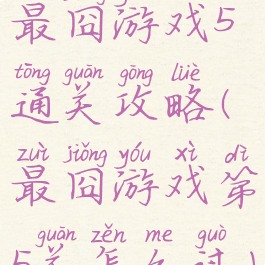 最囧游戏5
tōng guān gōng lüè
通关攻略(
zuì jiǒng yóu xì dì
最囧游戏第
guān zěn me guò
5关怎么过)